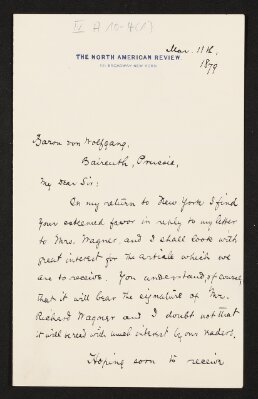 IV A 10-4 (1)
Mar. 11th.
THE NORTH AMERICAN REVIEW.
BROADWAY NEW YORK
1879
Baron von Wolfgang,
Baireuth, Prussia,
My dear Sir:
On my return to New York I find
your esteemed favor in reply to my letter
to Mrs. Wagner, and I shall look with
great interest for the article which we
are to receive. You understand, of course,
that it will bear the signature of Mr.
Richard Wagner and I doubt not that
it will be read with much interest by our readers.
Hoping soon to receive